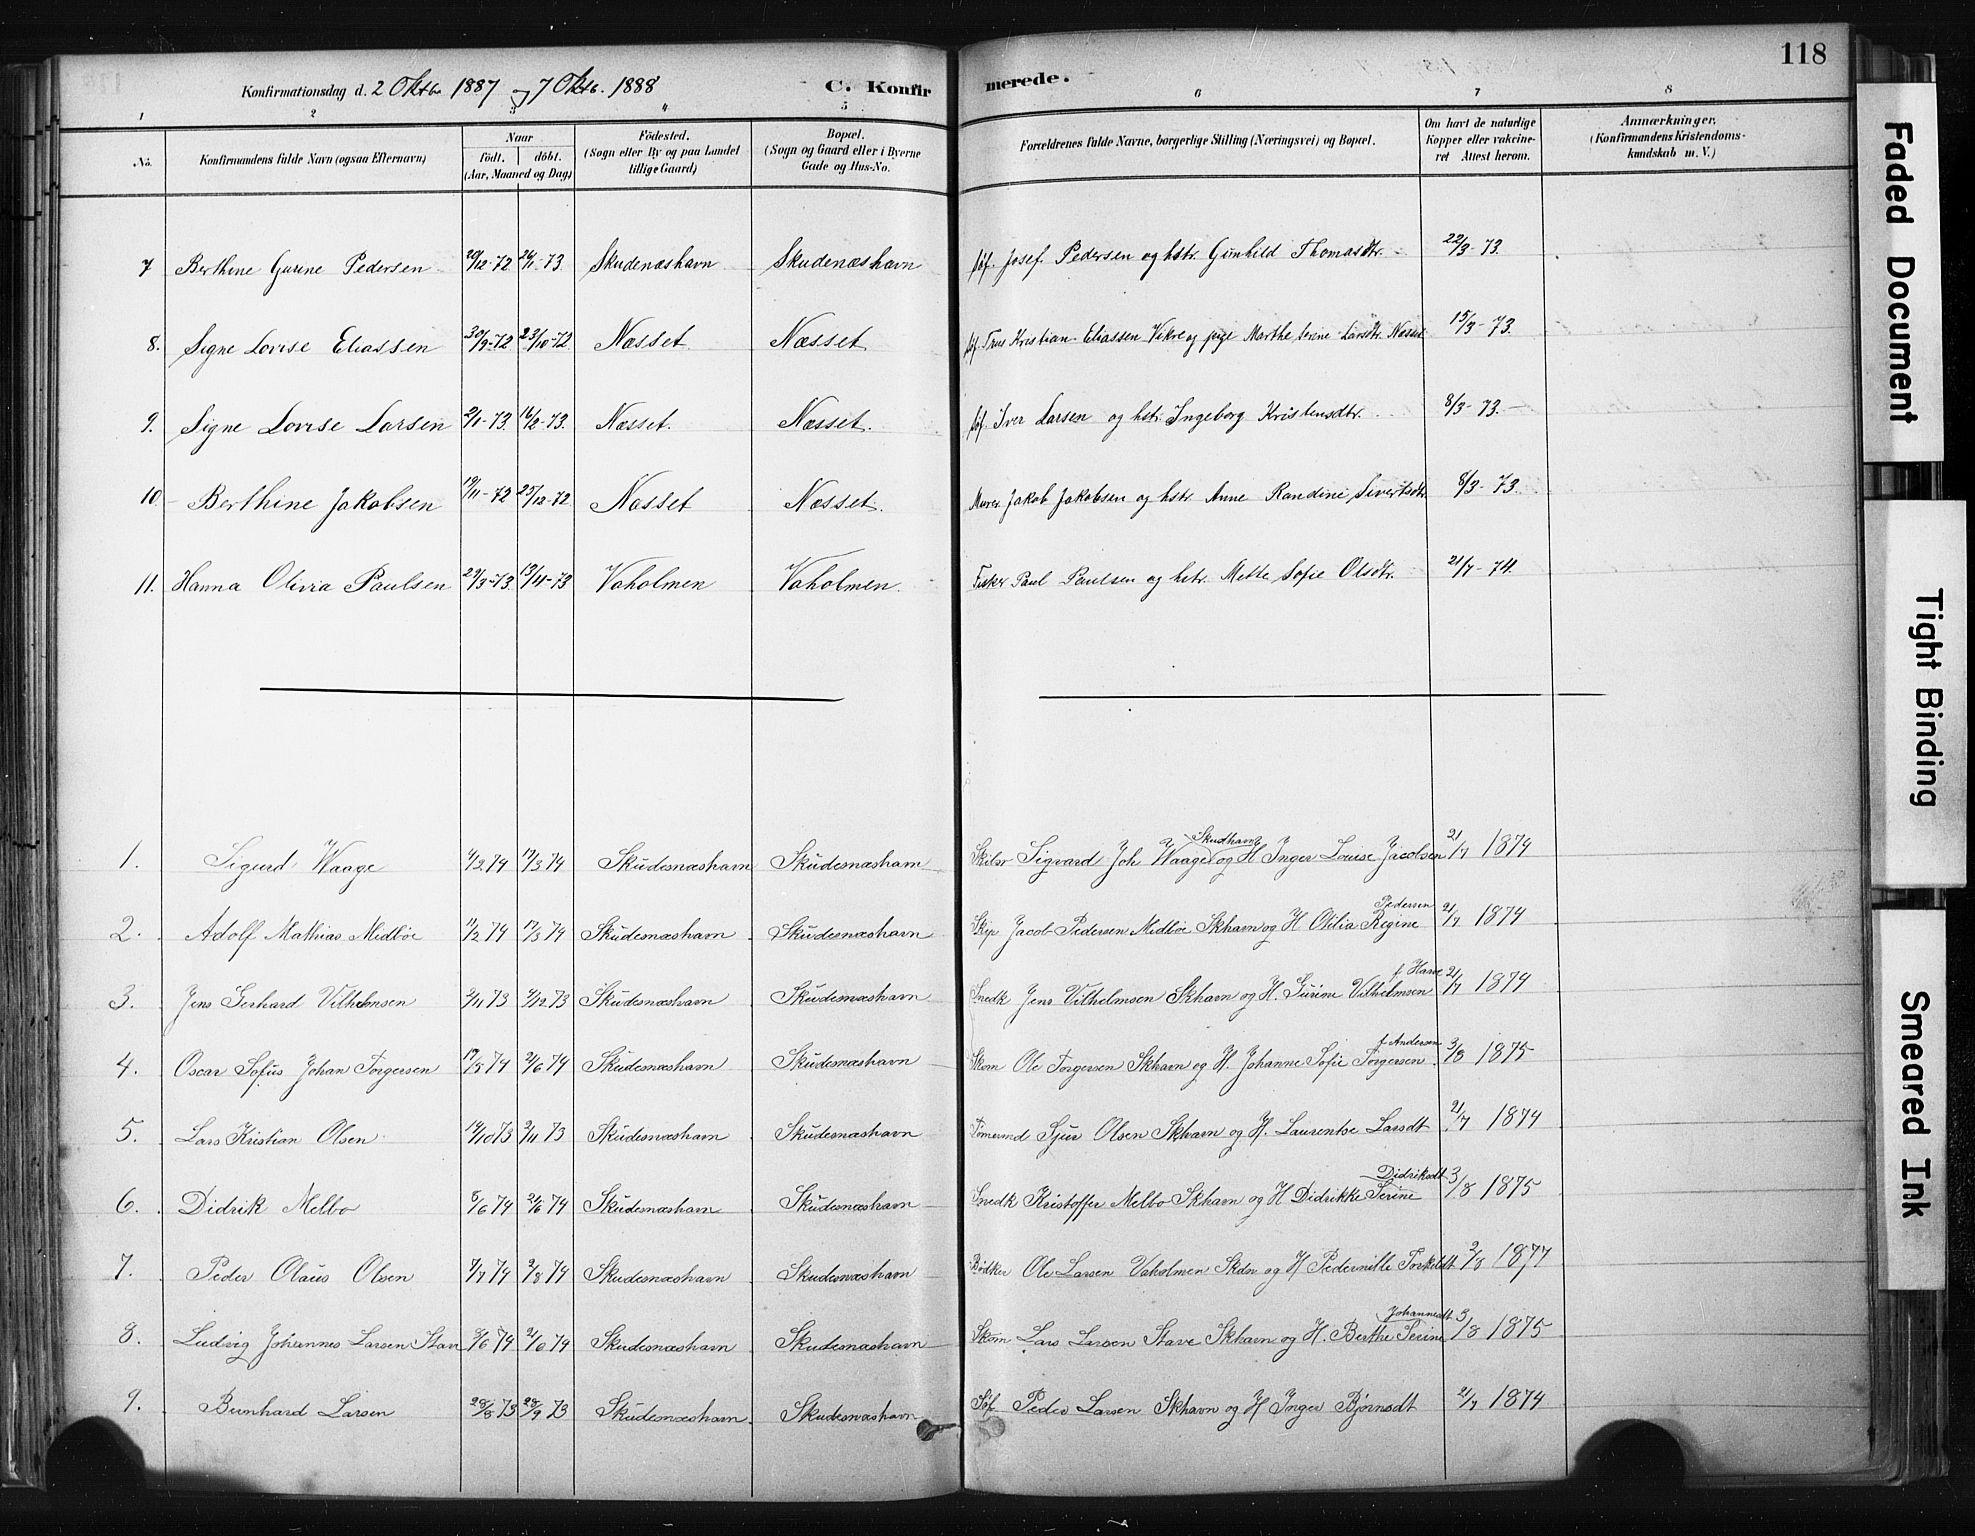 118
Konfirmationsdag d. 2 Oktbr 1887 og 7 Oktb. 1888 C. Konfirmerede.
1 2 3 4 5 6 7 8
No. Konfirmandens fulde Navn (ogsaa Efternavn) Naar födt. döbt. (Aar, Maaned og Dag) Födested. (Sogn eller By og paa Landet tillige Gaard) Bopæl. (Sogn og Gaard eller i Byerne Gade og Hus-No. Forældrenes fulde Navne, borgerlige Stilling (Næringsvei) og Bopæl. Om havt de naturlige Kopper eller vakcineret Attest herom. Anmærkninger. (Konfirmandens Kristendomskundskab m. V.)
7 Berthine Gurine Pedersen 29/12-72 26/1-73 Skudenæshavn Skudenæshavn søf. Josef Pedersen og hstr. Gunhild Thomasdtr. 22/3-73.
8. Signe Lovise Eliassen 30/9-72 23/10-72 Næsset Næsset søf. Kristian Eliassen Vikre og pige Marthe Serine Larsdtr. Næsset 15/3-73.
9. Signe Lovise Larsen 2/1-73. 16/2-73. Næsset. Næsset. søf. Iver Larsen og hstr. Ingeborg Kristensdtr. 8/3-73.
10 Berthine Jakobsen 19/11-72 25/12-72 Næsset Næsset. Murer Jakob Jakobsen og hstr. Anne Randine Sivertsdtr. 8/3-73.
11. Hanna Olivia Paulsen 29/3-73. 13/4-73 Vaholmen Vaholmen. Fisker Paul Paulsen og hstr. Mette Sofie Olsdtr. 21/7-74.
1. Sigurd Waage 4/2 74 17/3 74 Skudesnæshavn Skudesnæshavn Sigvard Joh Waage Skudhavn og H Inger Louise Jacobsen 21/7 1874
2. Adolf Mathias Midbøe 11/2 74 17/3 74 Skudesnæshavn Skudesnæshavn Skip Jacob Pedersen Midbøe Skhavn og H Otilia Regine Pedersen 21/7 1874
3. Jens Gerhard Vilhelmsen 9/11 73 2/12 73 Skudesnæshavn Skudesnæshavn Snedk Jens Vilhelmsen Skhavn og H. Gurine Vilhelmsen f. Hane 21/7 1874
4. Oscar Sofus Johan Torgersen 17/5 74 2/6 74 Skudesnæshavn Skudesnæshavn Skom Ole Torgersen Skhavn og H. Johanne Sofie Torgersen f. Andersen 3/8 1875
5. Lars Kristian Olsen 14/10 73 2/11 73 Skudesnæshavn Skudesnæshavn Tømermd Sjur Olsen Skhavn og H. Laurentse Larsdt 21/7 1874
6. Didrik Melbo 5/6 74 2/6 74 Skudesnæshavn Skudesnæshavn Snedk Kristoffer Melbo Skhavn og H Didrikke Serine Didriksdt 3/8 1875
7. Peder Olaus Olsen 7/7 74 2/8 74 Skudesnæshavn Skudesnæshavn Bødker Ole Larsen Vaholmen Skdn og H Pedernille Torkildt 2/8 1877
8. Ludvig Johannes Larsen Stav 8/6 74 2/6 74 Skudesnæshavn Skudesnæshavn Skom Lars Larsen Stave Skhavn og H. Berthe Serine Johannesdt 3/8 1875
9. Bernhard Larsen 28/8 73 28/9 73 Skudesnæshavn Skudesnæshavn Søf Peder Larsen Skhavn og H Inger Bjørnsdt 21/7 1874
Faded Document
Tight Binding
Smeared Ink